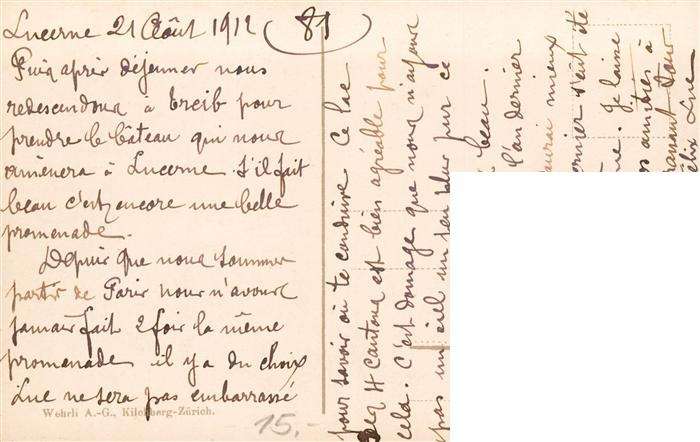 Lucerne 21 Août 1912 (81)
Puis après déjeuner nous
redescendons à Treib pour
prendre le bâteau qui nous
amènera à Lucerne S'il fait
beau c'est encore une belle
promenade.
Depuis que nous sommes
partis de Paris nous n'avons
jamais fait 2 fois la même
promenade il y a du choix
Luc ne sera pas embarrassé
pour savoir où te conduire Ce lac
des 4 Cantons est bien agréable pour
cela. C'est domage que nous n'ayons
pas un ciel un peu bleu sur ce
beau.
l'an dernier
aurai mieux
ernier s'eut été
Je laisse
amitiés à
Luc
Wehrli A.-G., Kilchberg-Zürich.
15.-